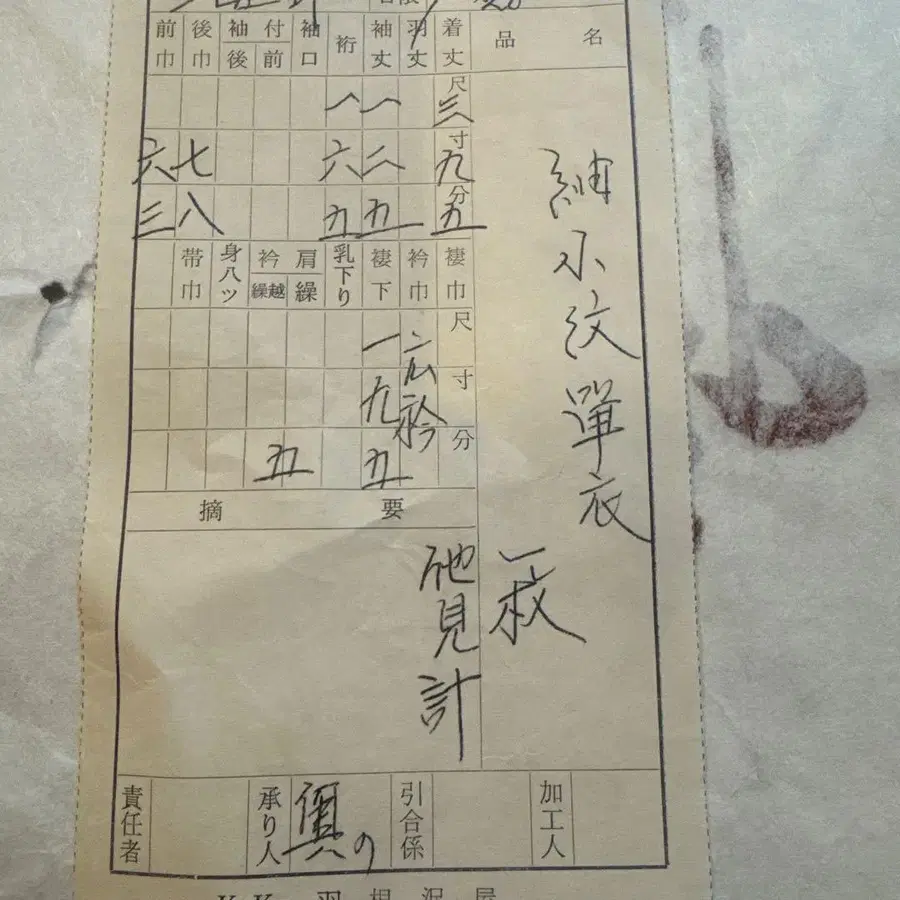 品名
着丈 羽丈 袖丈 裄 袖口 袖付 前 後 後巾 前巾
尺 三 一 一
寸 九 二 六 七 六
分 五 五 五 八 三
紬小紋單衣
一枚
褄巾 衿巾 褄下 乳下り 肩繰 衿 繰越 身八ツ 帯巾
尺 一
寸 九
分 五 五
広衿
摘要
他見計
加工人
引合係
承り人 の
責任者
K.K. 羽根沢屋